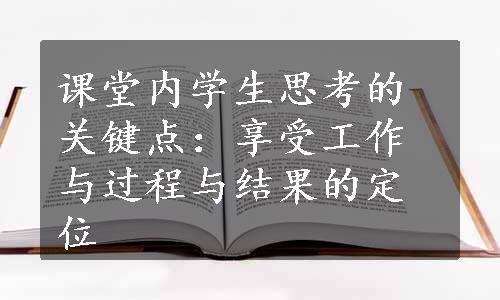 课堂内学生思考的
关键点：享受工作
与过程与结果的定
位